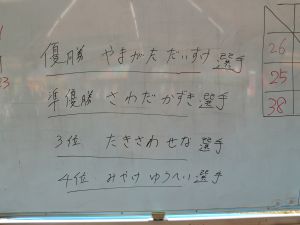 優勝 やまがただいすけ選手
準優勝 さわだかずき選手
3位 たきさわせな選手
4位 みやけゆうへい選手
26
25
38
23